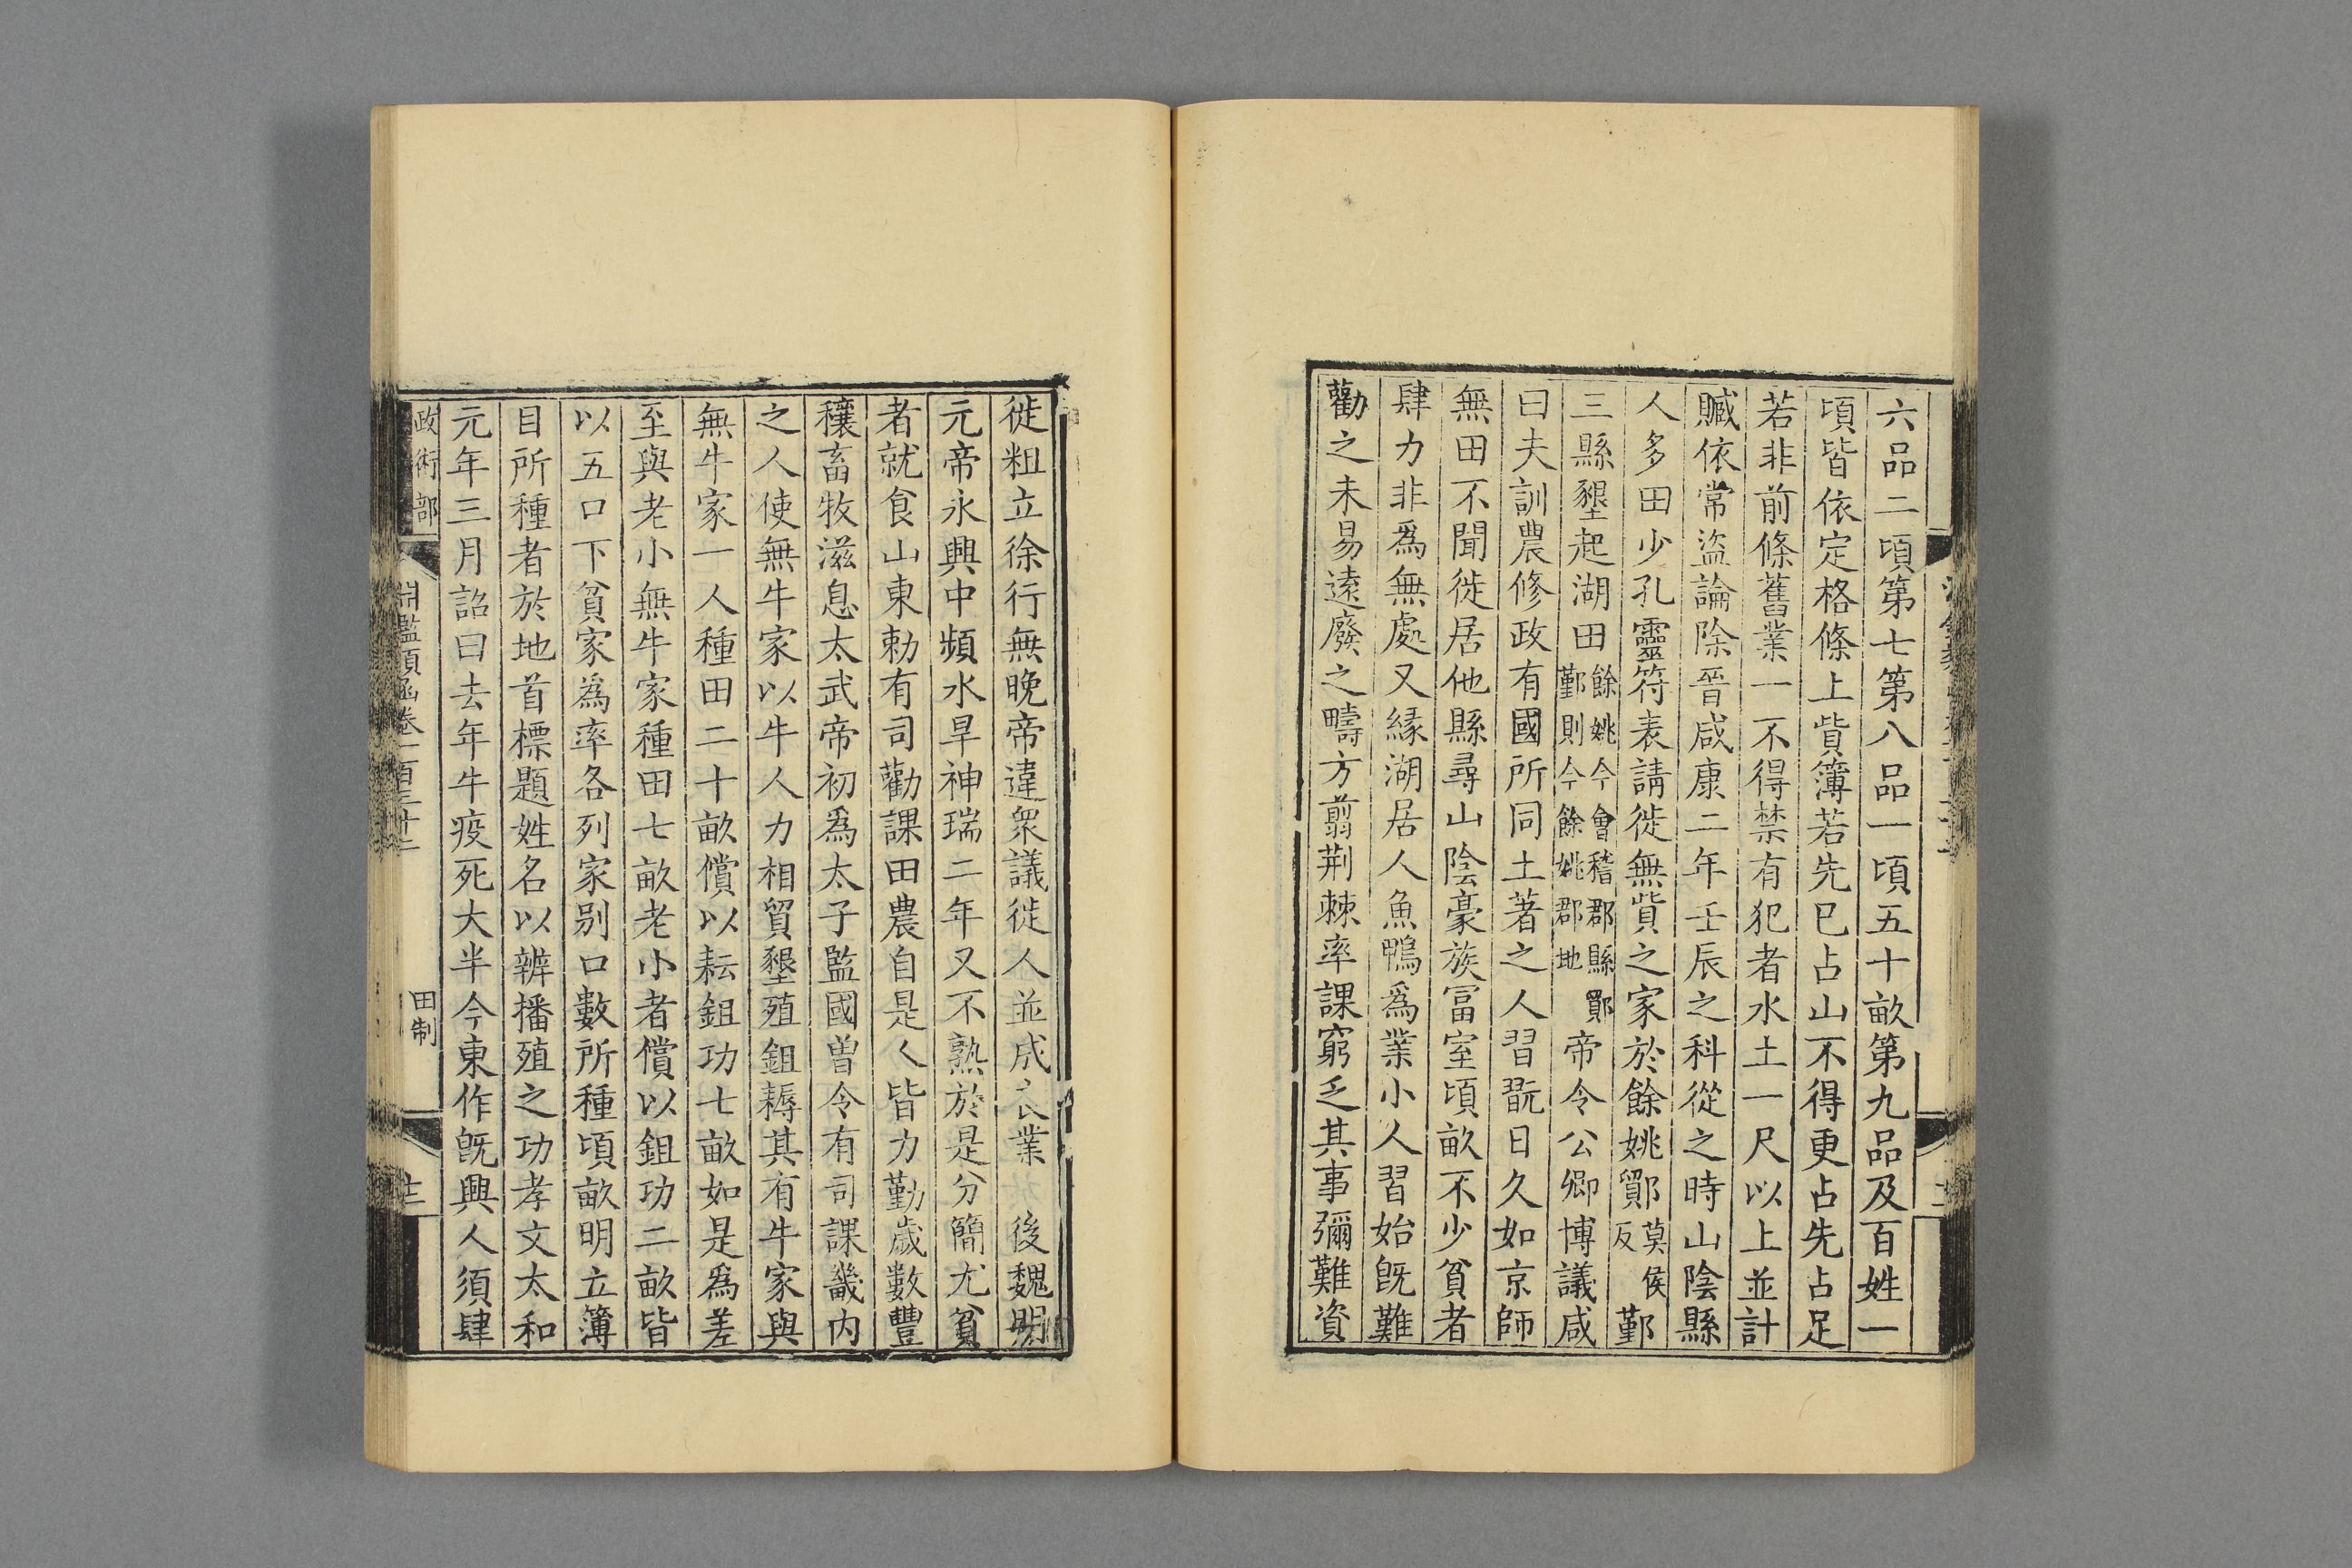 六品二頃第七第八品一頃五十畝第九品及百姓一
頃皆依定格條上貲簿若先已占山不得更占先占足
若非前條舊業一不得禁有犯者水土一尺以上並計
贓依常盜論除晉咸康二年壬辰之科從之時山陰縣
人多田少孔靈符表請徙無貲之家於餘姚鄮莫侯反鄞
三縣墾起湖田餘姚今會稽郡縣鄮鄞則今餘姚郡地帝令公卿博議咸
曰夫訓農修政有國所同土著之人習翫日久如京師
無田不聞徙居他縣尋山陰豪族冨室頃畝不少貧者
肆力非爲無處又緣湖居人魚鴨爲業小人習始旣難
勸之未易遠廢之疇方翦荆棘率課窮乏其事彌難資
徙粗立徐行無晚帝違衆議徙人並成業後魏明
元帝永興中頻水旱神瑞二年又不熟於是分簡尤貧
者就食山東勅有司勸課田農自是人皆力勤歲數豐
穰畜牧滋息太武帝初爲太子監國曽令有司課畿内
之人使無牛家以牛人力相貿墾殖鉏耨其有牛家與
無牛家一人種田二十畝償以耘鉏功七畝如是爲差
至與老小無牛家種田七畝老小者償以鉏功二畝皆
以五口下貧家爲率各列家别口數所種頃畝明立簿
目所種者於地首標題姓名以辨播殖之功孝文太和
元年三月詔曰去年牛疫死大半今東作旣興人須肆
政術部
淵鑑類函卷一百三十二
田制